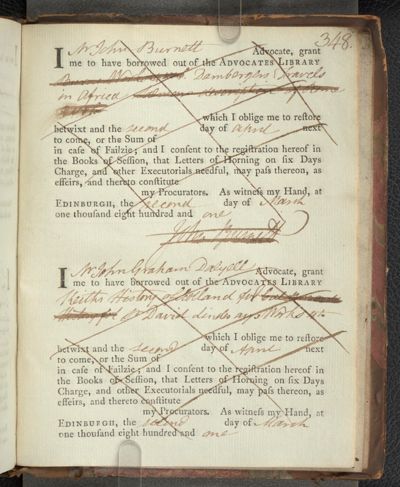 348.
I Mr John Burnett Advocate, grant
me to have borrowed out of the ADVOCATES LIBRARY
Dambergers Travels
in Africa
which I oblige me to reſtore
betwixt and the second day of april next
to come, or the Sum of
in caſe of Failzie; and I conſent to the regiſtration hereof in
the Books of Seſſion, that Letters of Horning on ſix Days
Charge, and other Executorials needful, may paſs thereon, as
effeirs, and thereto conſtitute
my Procurators. As witneſs my Hand, at
EDINBURGH, the second day of March
one thouſand eight hundred and one
John Burnett
I Mr John Graham Dalyell Advocate, grant
me to have borrowed out of the ADVOCATES LIBRARY
Keiths History of Scotland fol
Sr David Lindsays Works
which I oblige me to reſtore
betwixt and the second day of April next
to come, or the Sum of
in caſe of Failzie; and I conſent to the regiſtration hereof in
the Books of Seſſion, that Letters of Horning on ſix Days
Charge, and other Executorials needful, may paſs thereon, as
effeirs, and thereto conſtitute
my Procurators. As witneſs my Hand, at
EDINBURGH, the second day of March
one thouſand eight hundred and one